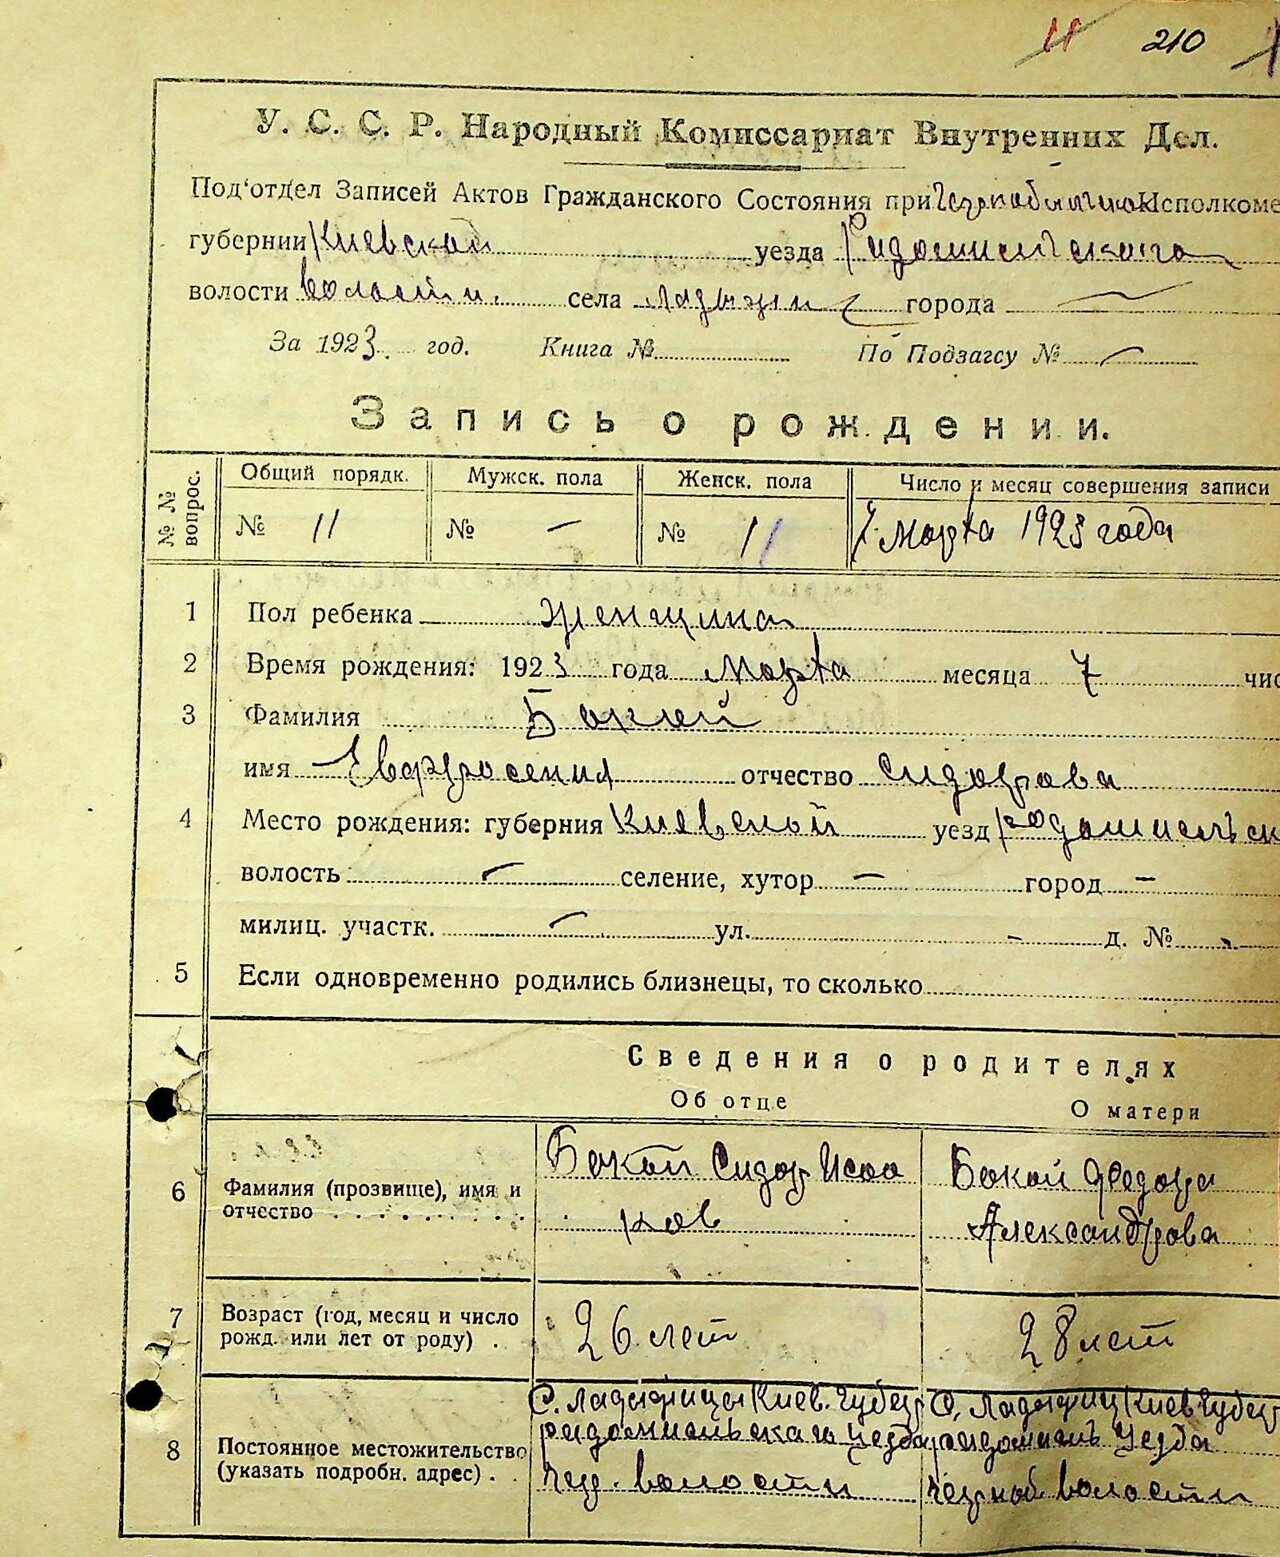 11 210
У. С. С. Р. Народный Комиссариат Внутренних Дел.
Под'отдел Записей Актов Гражданского Состояния при Исполкоме
губернии Киевской уезда Радомисльского
волости волости села города —
За 1923 год. Книга № По Подзагсу № —
Запись о рождении.
№ № вопрос. Общий порядк. Мужск. пола Женск. пола Число и месяц совершения записи
№ 11 № — № 11 7 Марта 1923 года
1 Пол ребенка женщина
2 Время рождения: 1923 года Марта месяца 7 чис
3 Фамилия Бокей
имя Евфросения отчество Сидорова
4 Место рождения: губерния Киевской уезд Радомисльск
волость — селение, хутор — город —
милиц. участк. — ул. - д. № -
5 Если одновременно родились близнецы, то сколько
Сведения о родителях
Об отце О матери
6 Фамилия (прозвище), имя и отчество Бокой Сидор Исаа
ков
Бокой Федора
Александрова
7 Возраст (год, месяц и число рожд. или лет от роду) 26 лет 28 лет
8 Постоянное местожительство (указать подробн. адрес)
С. Ладыжицы Киев. Губер
радомисльскаго уезда
Чер. волости
С. Ладыжиц Киев Губер
радомисль Уезда
Черноб. волости